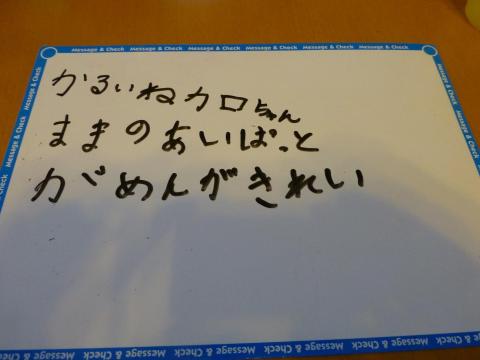 Message & Check Message & Check Message & Check Message & Check Message & Check Message & Check
かるいねカロちゃん
ままのあいぱっと
がめんがきれい
Message & Check
Message & Check
Message & Check
Message & Check Message & Check Message & Check Message & Check